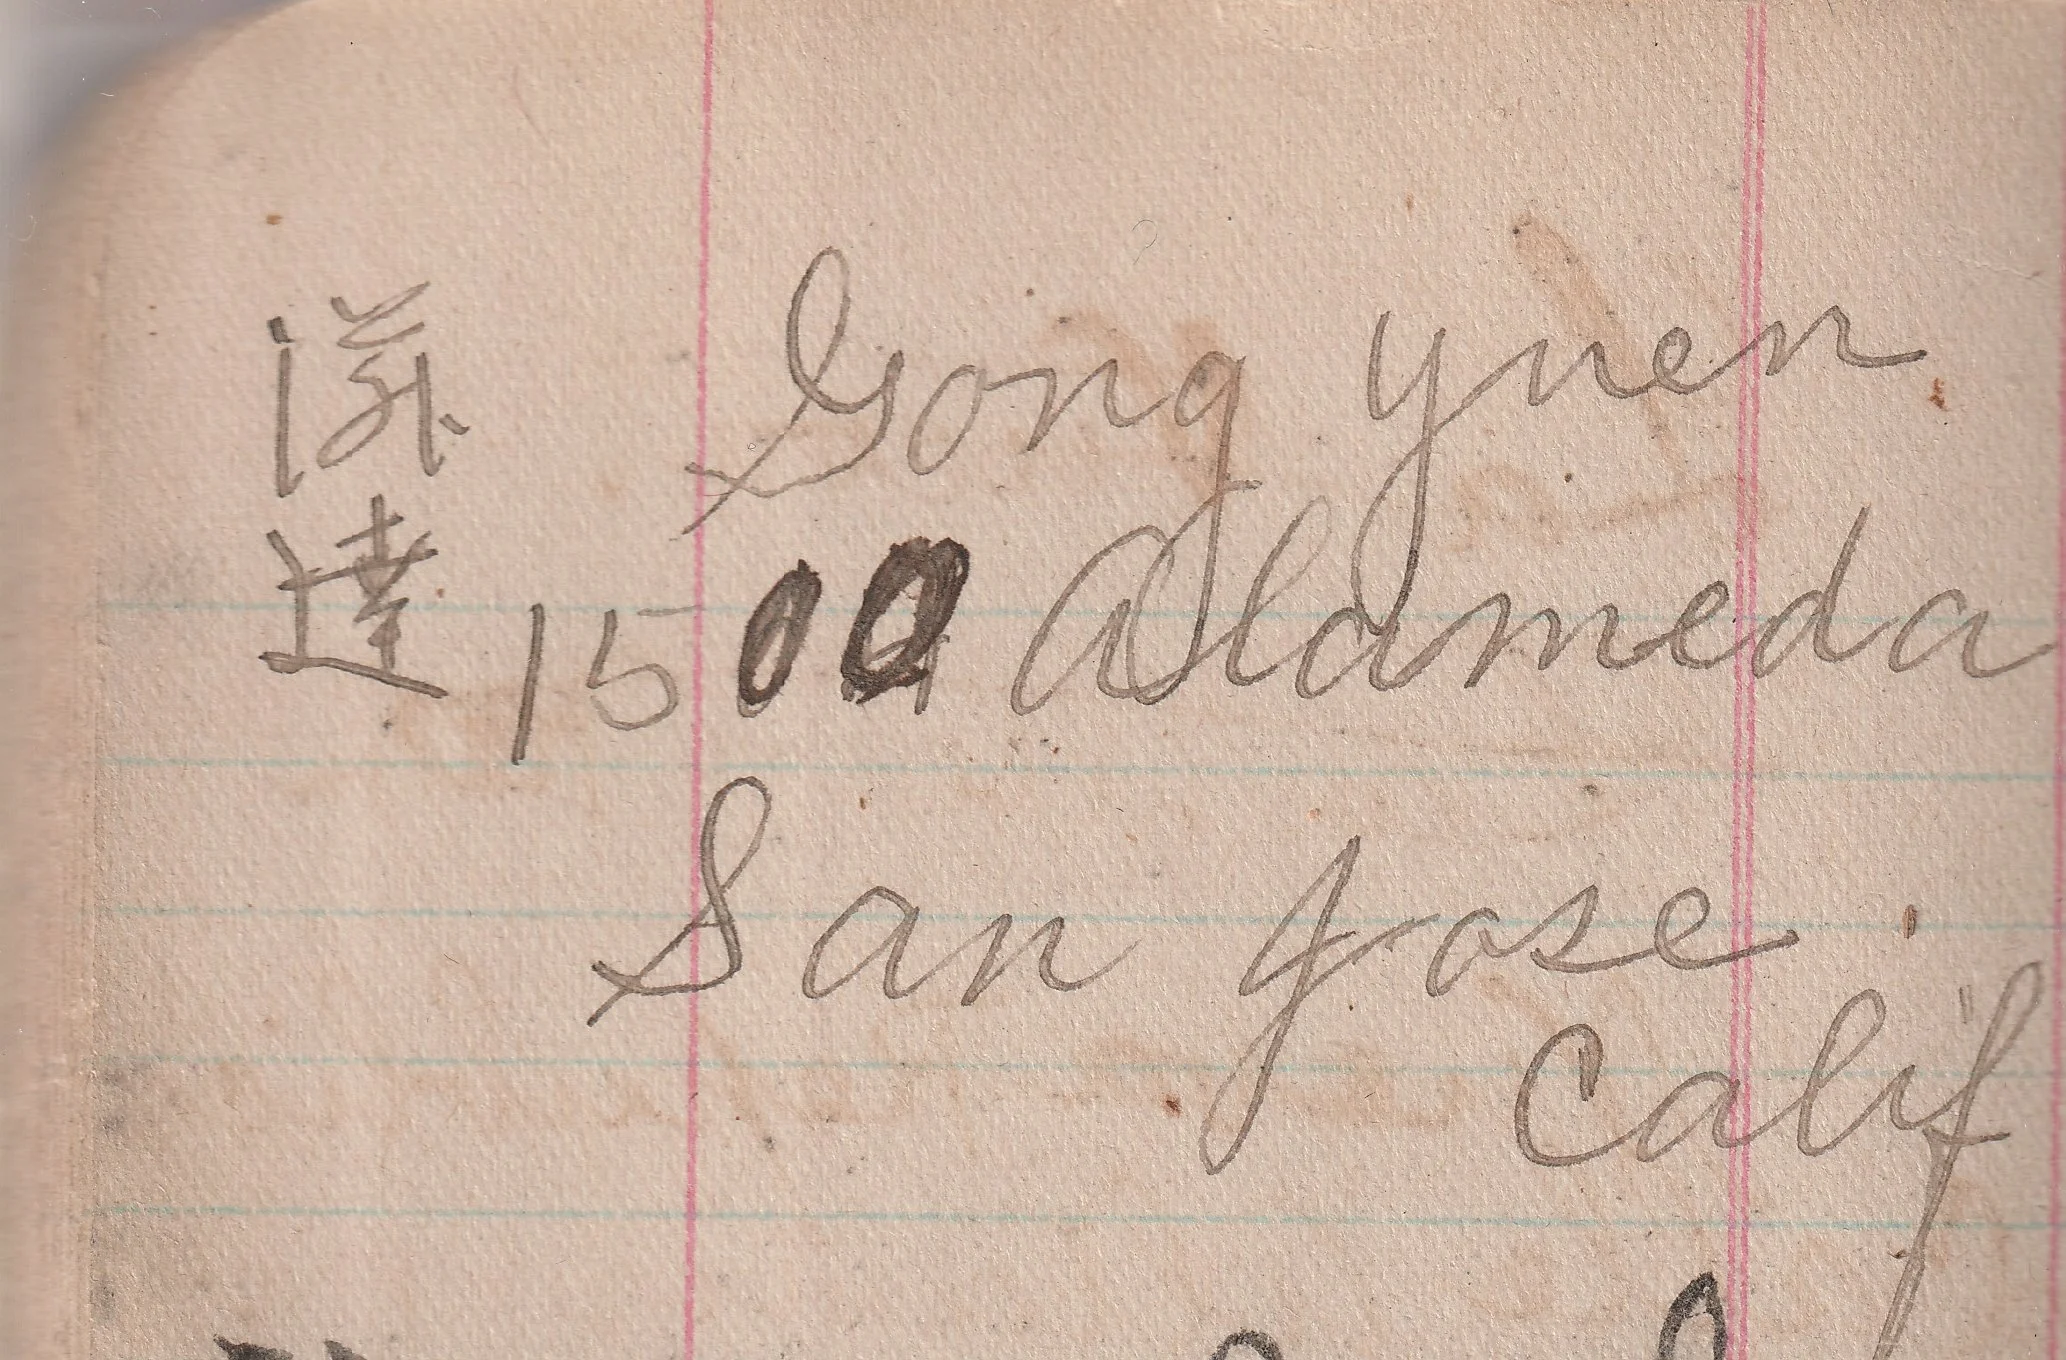 Gong yuen
達
1500 Alameda
San Jose
Calif